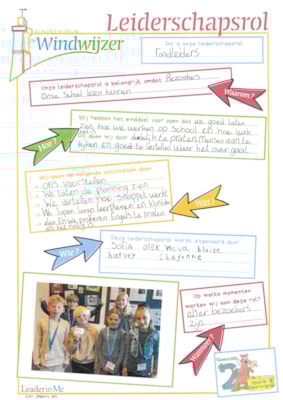 Leiderschapsrol
Windwijzer
Dit is onze leiderschapsrol:
rondleiders
Onze leiderschapsrol is belangrijk, omdat Bezoekers
Onze School leren kennen
Waarom?
Wij hebben het einddoel voor ogen dat we goed laten
zien hoe we werken op school en hoe leuk
Dit doen wij door duidelijk te praten Mensen aan te
kijken en goed te vertellen waar het over gaat
Hoe?
Wij doen de volgende activiteiten doen:
ons voorstellen
We laten de planning zien
We vertellen hoe snappet werkt
We lopen langs leerpleinen en klaslok
en We proberen Engels te praten
als het nodig is
Wat?
Wie?
Deze leiderschapsrol wordt uitgevoerd door:
Sofia
Chayenne
Op welke momenten
werken wij aan deze rol?
Als er bezoekers
zijn
Wanneer?
Leader in Me
Gewoonte
2